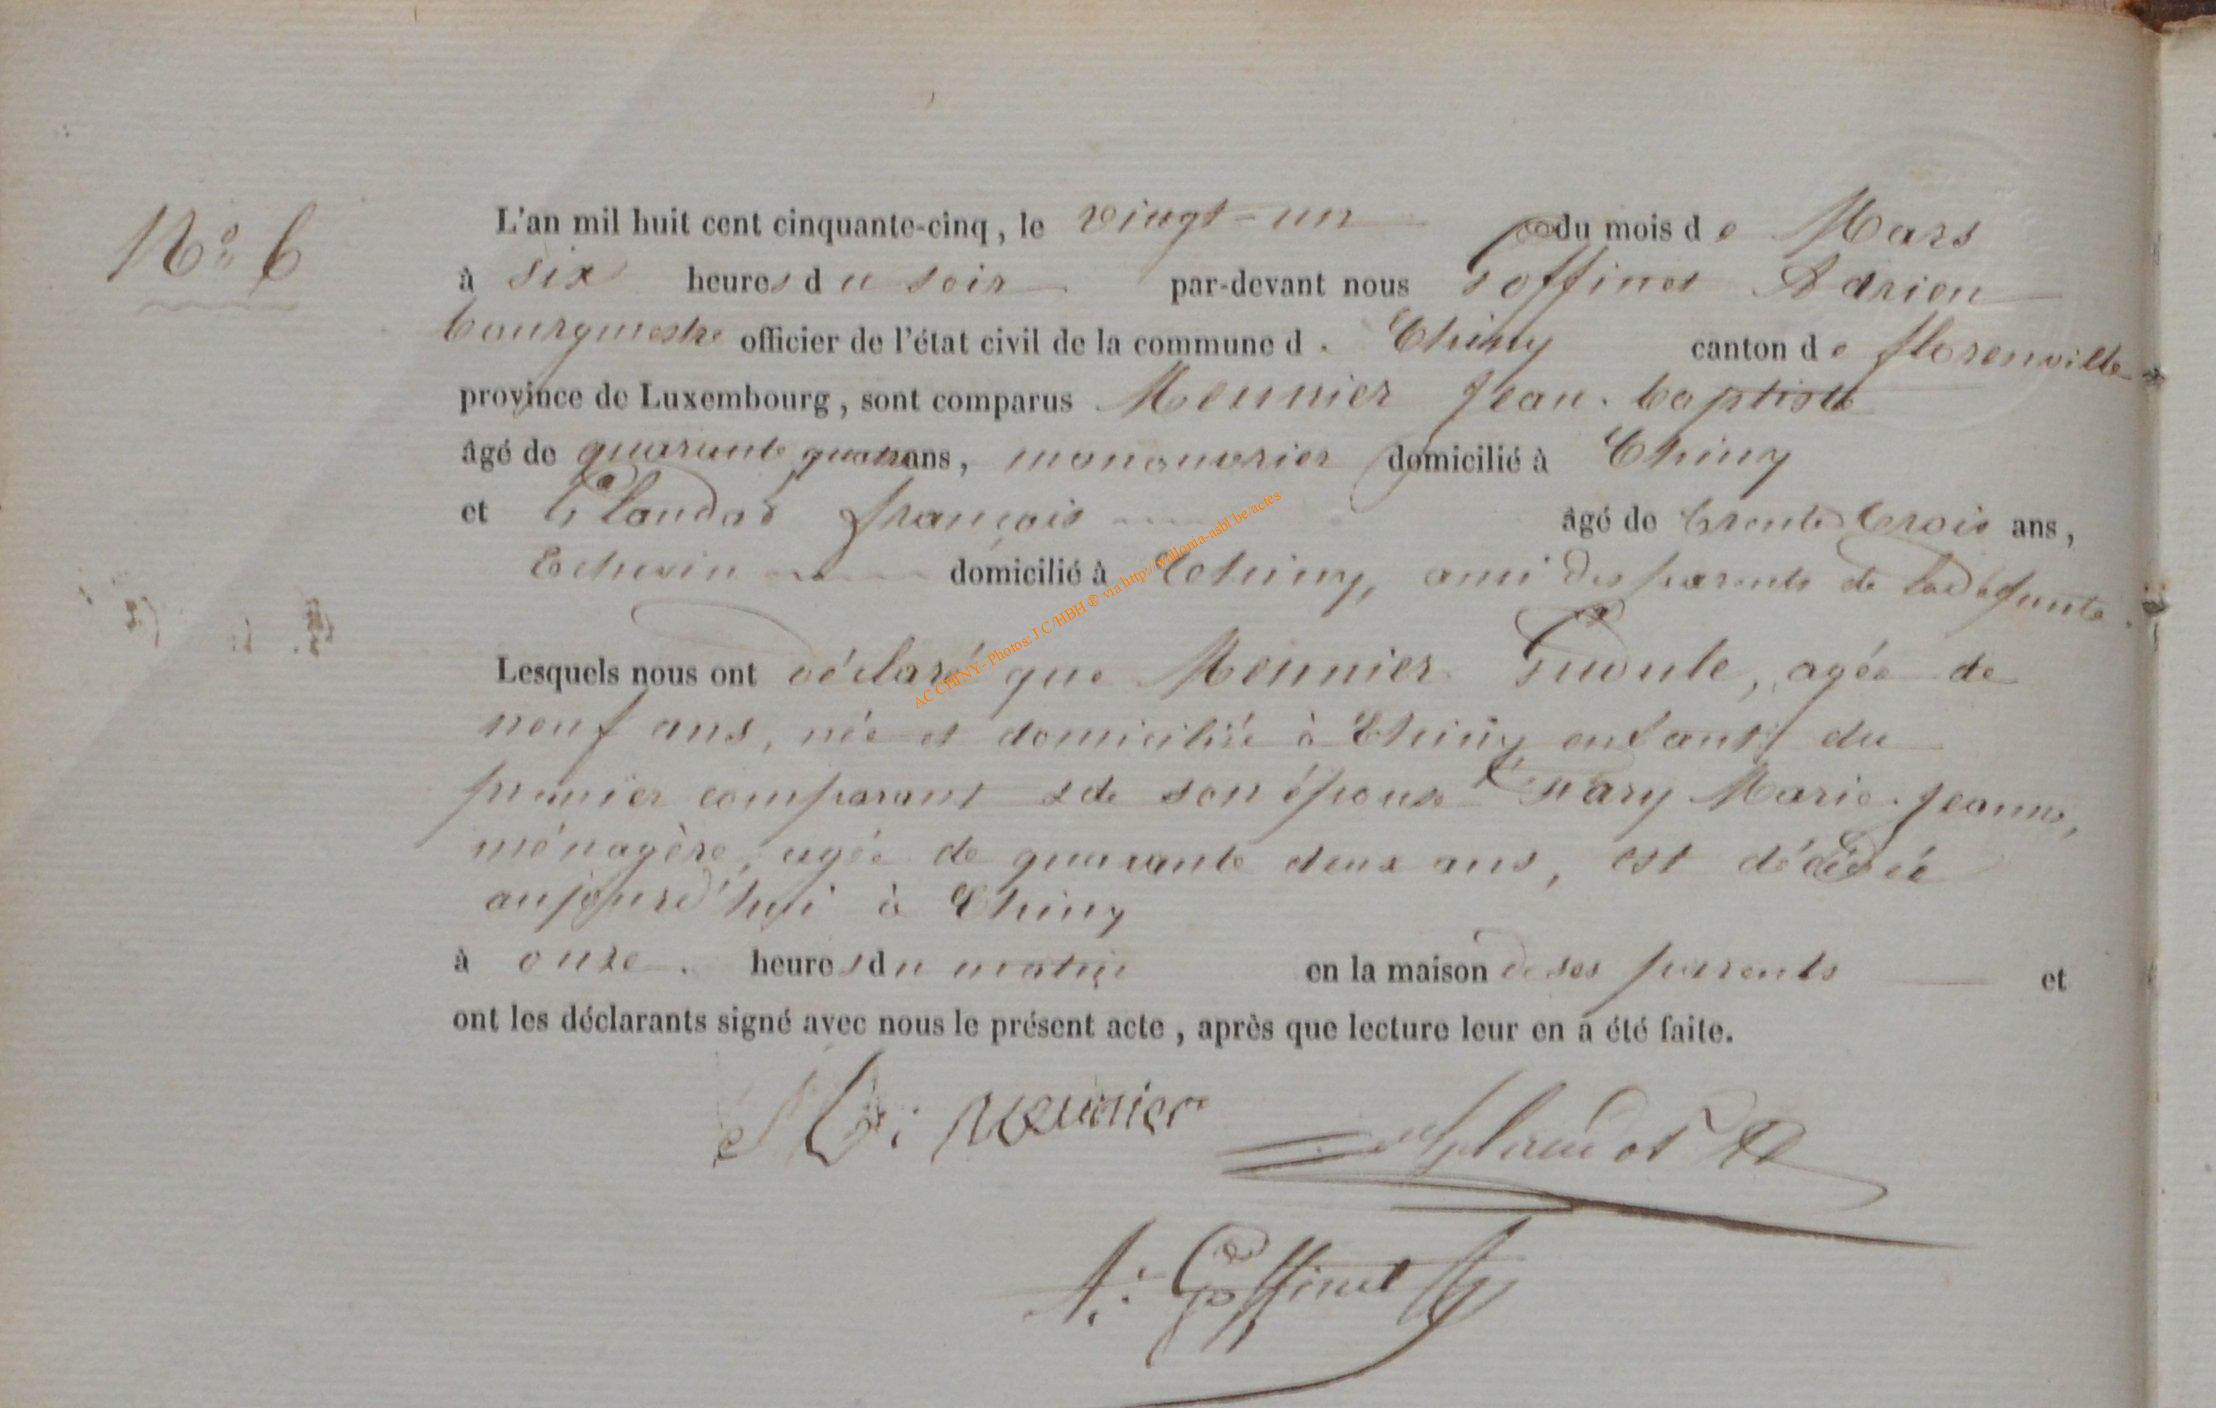 N° 6
L'an mil huit cent cinquante-cinq, le vingt-un du mois de Mars
à six heures du soir par-devant nous Goffinet Adrien
bourgmestre officier de l'état civil de la commune d. Chiny canton de florenville
province de Luxembourg, sont comparus Meunier Jean-baptiste
âgé de quarante quatre ans, manouvrier domicilié à Chiny
et Glaudot françois âgé de trente trois ans,
Echevin domicilié à Chiny, ami des parents de la défunte.
Lesquels nous ont déclaré que Meunier Gudule, agée de
neuf ans, née et domiciliée à Chiny enfant du
premier comparant & de son épouse Marie-Jeanne,
ménagère, agée de quarante deux ans, est décédée
aujourd'hui à Chiny
à onze heures du matin en la maison de ses parents et
ont les déclarants signé avec nous le présent acte, après que lecture leur en a été faite.
J B: meunier
Glaudot
A: Goffinet
AC CHINY- Photos: J.C/HBH ® via http://wallonia-asbl.be/actes